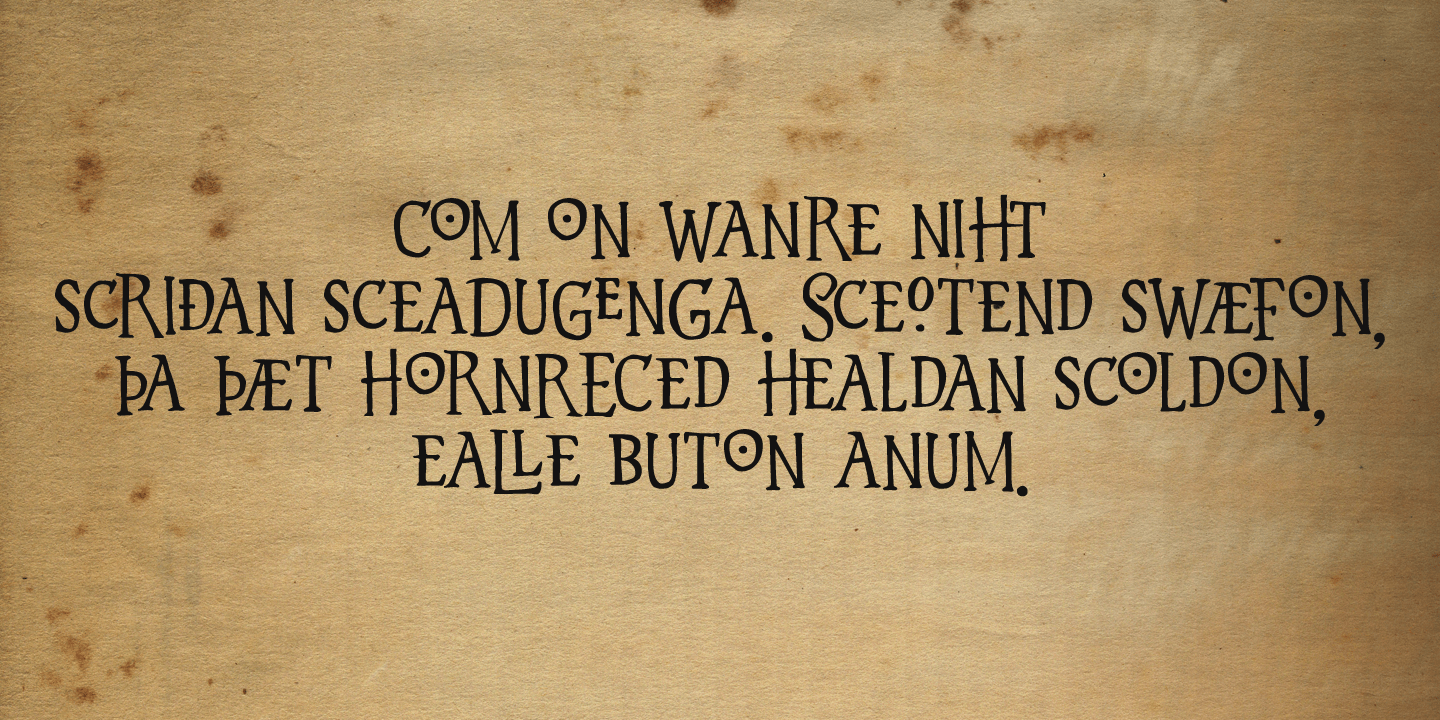 COM ON WANRE NIHT
SCRIÐAN SCEADUGENGA. SCEOTEND SWÆFON,
ÞA ÞÆT HORNRECED HEALDAN SCOLDON,
EALLE BUTON ANUM.